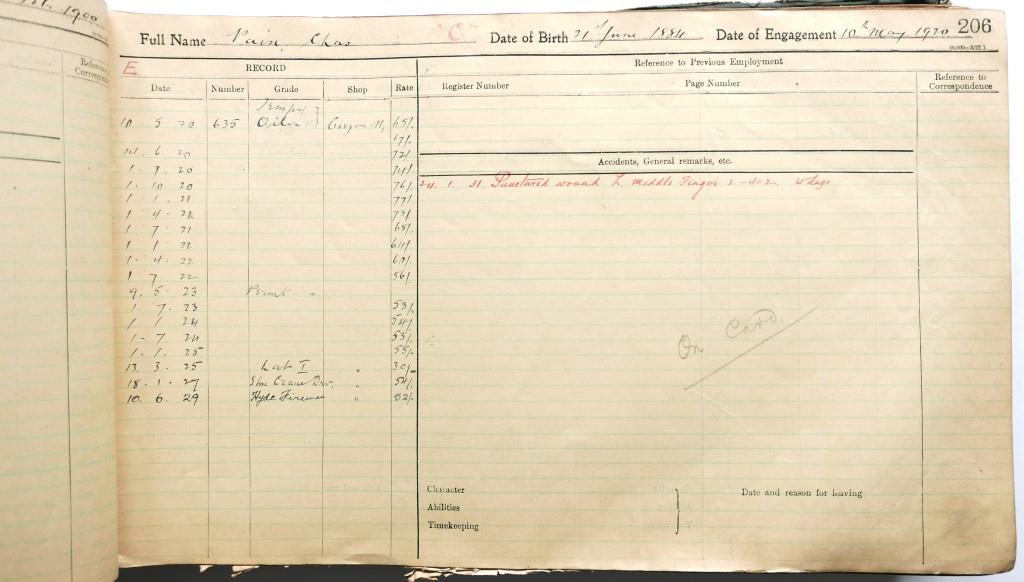 1900
206
Full Name Pain, Chas Date of Birth 21st June 1884 Date of Engagement 10th May 1920
E RECORD Reference to Previous Employment
Date Number Grade Shop Rate Register Number Page Number Reference to Correspondence
Tempy
10 5 20 635 Oiler 65/-
6 20 72/-
1 7 20 74/-
1 10 20 76/-
1 1 21 77/-
1 4 21 73/-
1 7 21 68/-
1 1 22 64/-
1 4 22 60/-
1 7 22 56/-
9 5 23 Permt
1 7 23 53/-
1 1 24 54/-
1 7 24 53/-
1 1 25 55/-
13 3 25 " 30/-
18 1 27 Stm Crane Drvr "
10 6 29 Hyde Fireman " 52/-
Accidents, General remarks, etc.
24 1 31 Punctured wound L. Middle Finger days
On Card
Character
Abilities
Timekeeping
Date and reason for leaving